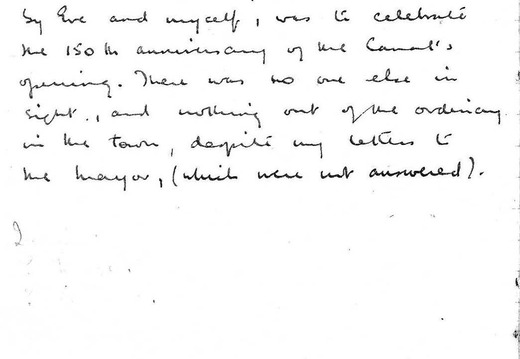 by Eve and myself, was to celebrate
the 150th anniversary of the Canal's
opening. There was no one else in
sight., and nothing out of the ordinary
in the town, despite my letters to
the Mayor, (which were not answered).